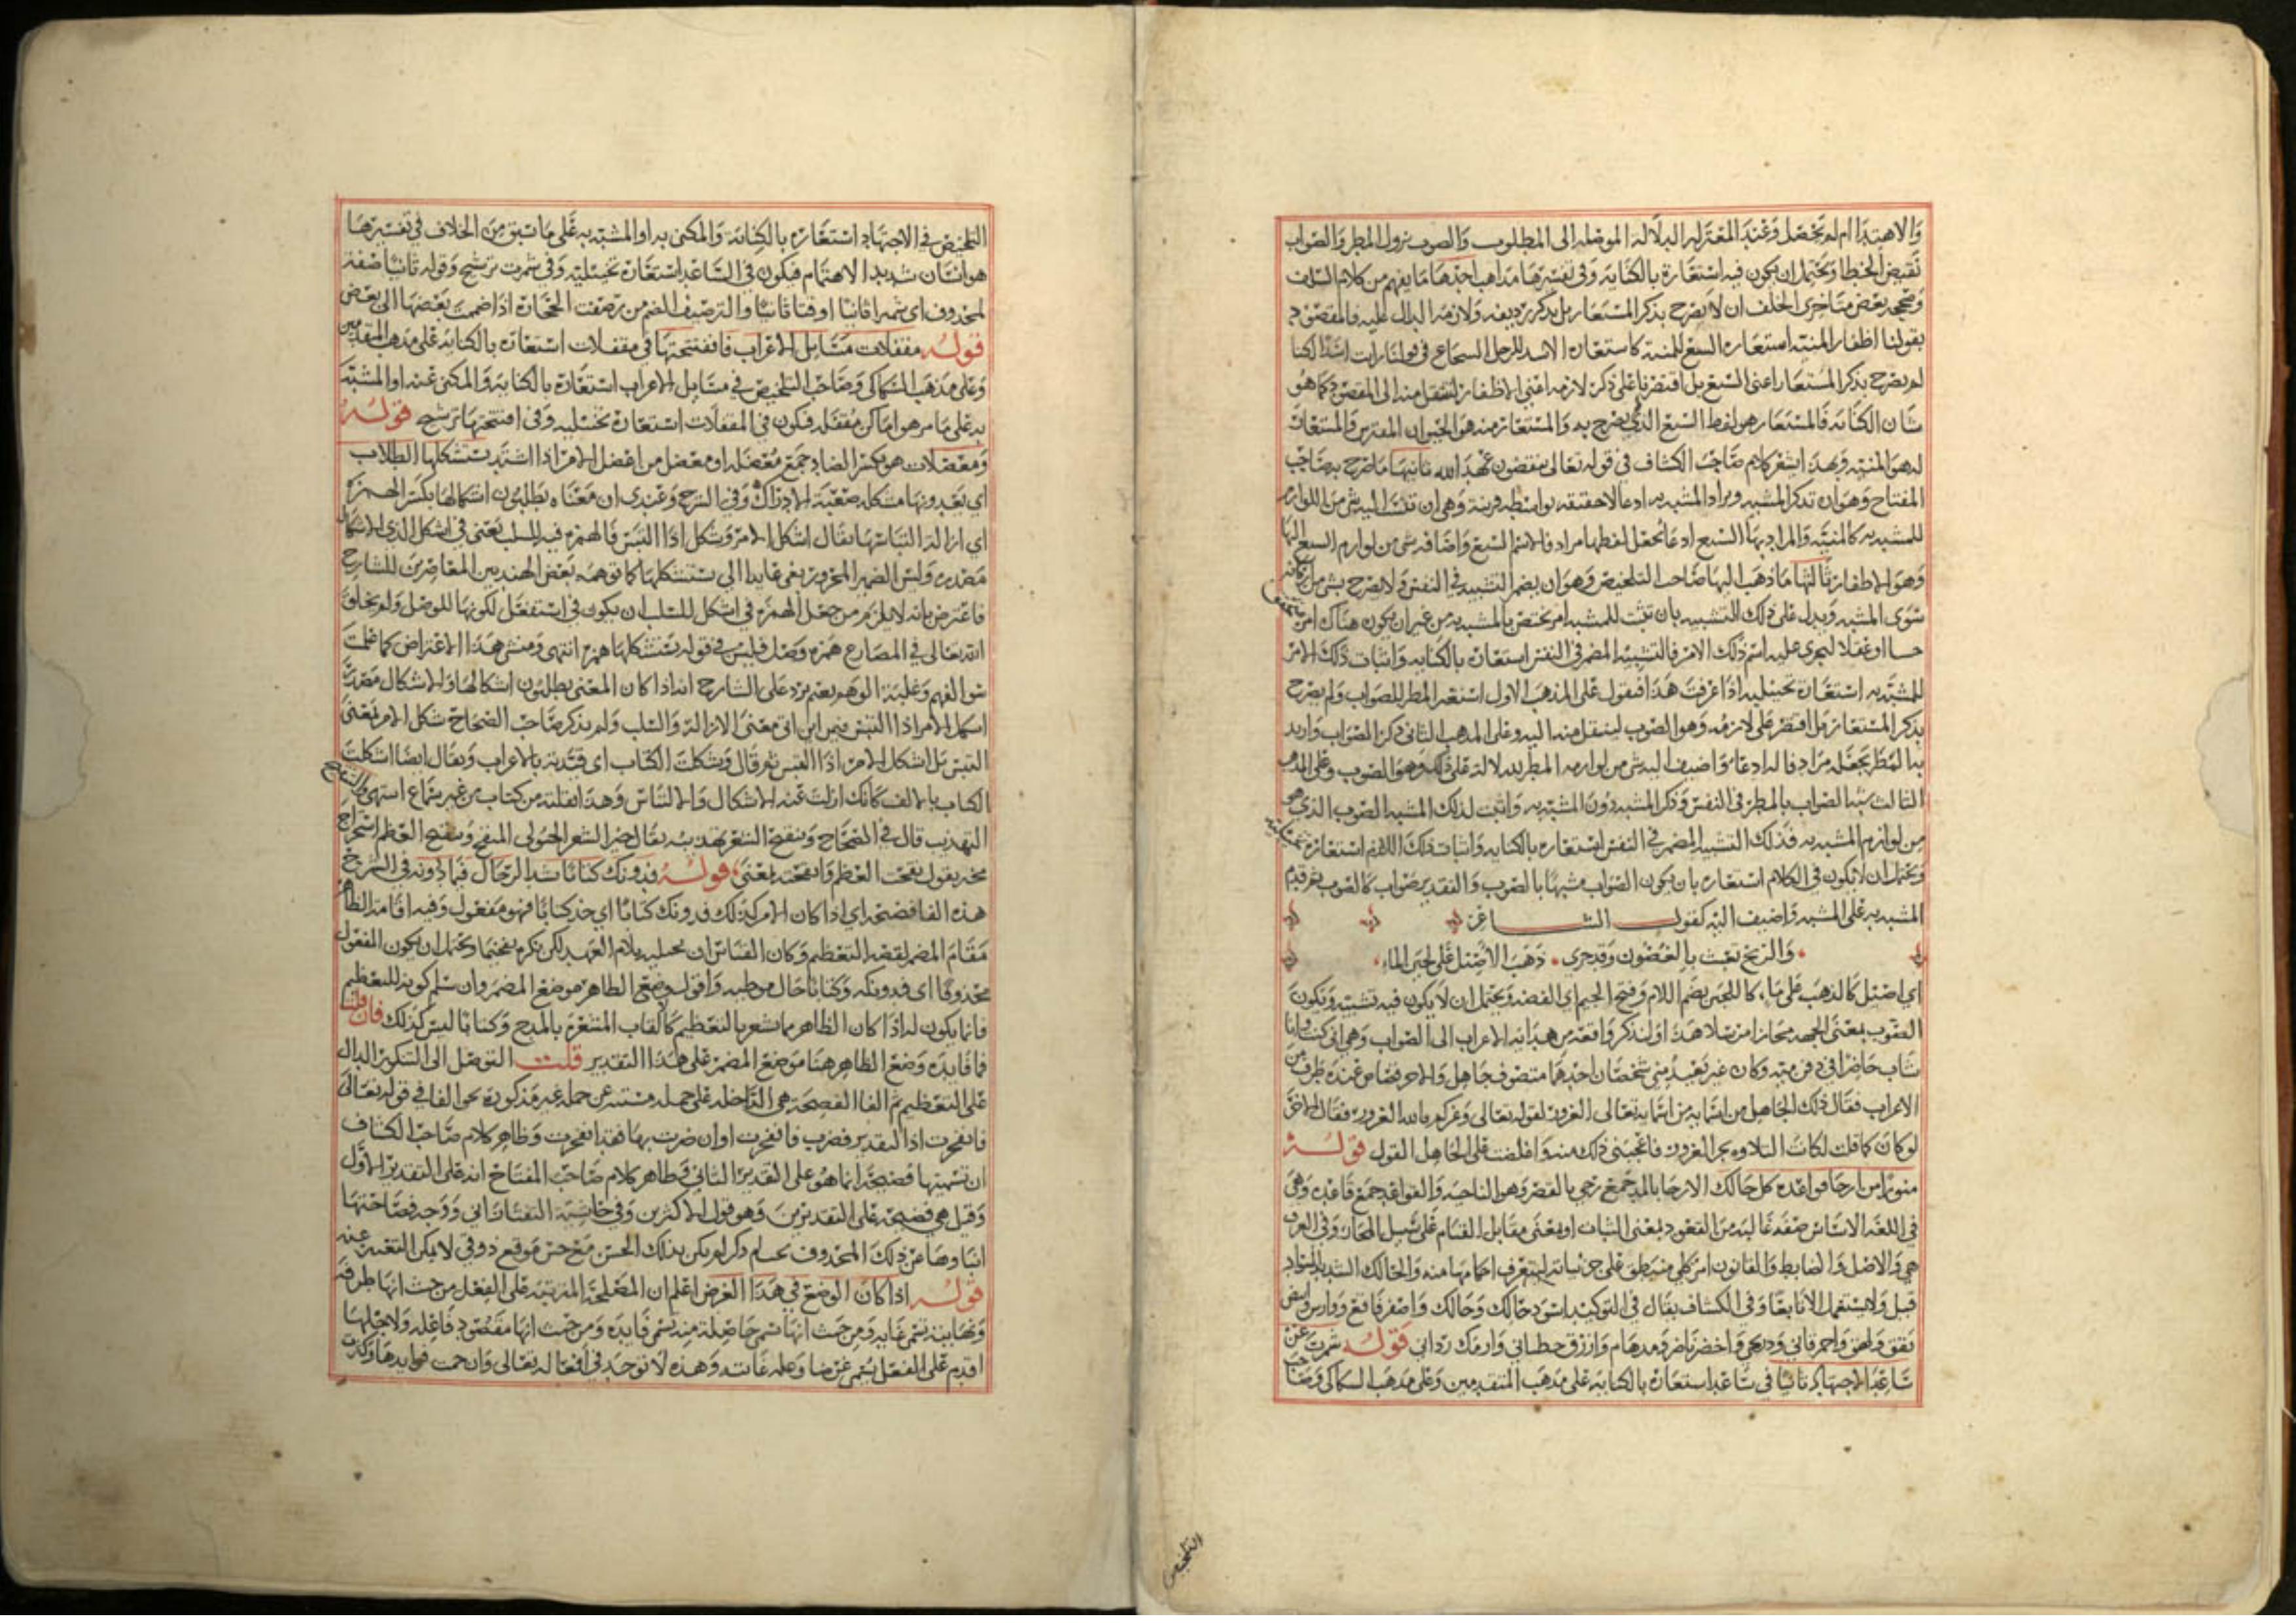 والاهتداا م لم يحصل وعند المعتزله الدلالة الموصله الى المطلوب والصوب نزول المطر والصواب
نقيض الخطا ويحتمل ان يكون فيه استعارة بالكناية وفي تفسيرها مذاهب احدها ما يفهم من كلام السلف
وصححه بعض متاخري الخلف ان لا يصرح بذكر المستعار بل بذكر رديفه ولازمه الدال عليه فالمقصود
بقولنا اظفار المنيه استعاره السبع للمنية كاستعارة الاسد للرجل الشجاع في قولنا رايت اسدا لكنا
لم نصرح بذكر المستعار اعني السبع بل اقتصرنا على ذكر لازمه اعني الاظفار لينتقل منه الى المقصود كما هو
شان الكناية فالمستعار هو لفظ السبع الذي لم يصرح به والمستعار منه هو الحيوان المفترس والمستعار
له هو المنيه وبهذا اشعر كلام صاحب الكشاف في قوله تعالى ينقضون عهد الله ثانيها ما صرح به صاحب
المفتاح وهو ان تذكر المشبه ويراد المشبه به ادعا لا حقيقة بواسطه قرينة وهي ان تنسب اليه شي من اللوازم
للمشبه به كالمنية والمراد بها السبع ادعا بجعل لفظها مرادفا لاسم السبع واضافه شي من لوازم السبع اليها
وهو الاظفار ثالثها ما ذهب اليها صاحب التلخيص وهو ان يضمر التشبيه في النفس ولا يصرح بشي من اركانه
سوى المشبه ويدل على ذلك التشبيه بان تثبت للمشبه امر يختص بالمشبه به من غير ان يكون هناك امر متحقق
حسا او عقلا ليجرى عليه اسم ذلك الامر فالتشبيه المضمر في النفس استعارة بالكنايه واثبات ذلك الامر
للمشبه استعارة تخييليه اذا عرفت هذا فنقول على المذهب الاول استعير المطر للصواب ولم يصرح
بذكر المستعار بل اقتصر على لازمه وهو الصوب لينتقل منه اليه وعلى المذهب الثاني ذكر الصواب واريد
به المطر بجعله مرادفا له ادعا واضيف اليه شي من لوازمه المطر للدلالة على ذلك وهو الصوب وعلى المذهب
الثالث شبه الصواب بالمطر في النفس وذكر المشبه دون المشبه به واثبت لذلك المشبه الصوب الذي هو
من لوازم المشبه به فذلك التشبيه المضمر في النفس استعاره بالكنايه واثبات ذلك اللازم استعارة تخييلية
ويحتمل ان لا يكون في الكلام استعاره بان يكون الصواب مشبها بالصوب والتقدير صواب كالصوب ثم قدم
المشبه به على المشبه واضيف اليه كقول الشاعر
والريح تعبث بالغصون وقد جرى ذهب الاصيل على لجين الماء
اي اصيل كالذهب على ماء كاللجين بضم اللام وفتح الجيم اي الفضه ويحتمل ان لا يكون فيه تشبيه ويكون
الصوب بمعنى الجهه مجازا مرسلا هذا ولنذكر واقعة من هداية الاعراب الى الصواب وهي اني كنت وانا
شاب حاضرا في ... وكان غير بعيد مني شخصان احدهما متصوف جاهل والاخر فضا من عنده طرف من
الاعراب فقال ذلك الجاهل من اسمايه من اسمايه تعالى الغرور لقوله تعالى وغركم بالله الغرور فقال الاخر
لو كان كما قلت لكانت التلاوه بجر الغرور فاعجبني ذلك منه وافلضت على الجاهل القول قوله
منورا من ارجا قواعده كل حالك الارجا بالمد جمع رجي بالقصر وهو الناحيه والقواعد جمع قاعده وهي
في اللغة الاساس صفه غالبه من القعود بمعنى الثبات او بمعنى مقابل القيام على سبيل المجاز وفي العرف
هي والاصل والضابط والقانون امر كلي منطبق على جزئياته ليتعرف احكامها منه والحالك الشديد السواد
قيل ولا يستعمل الا تابعا وفي الكشاف يقال في التوكيد اسود حالك وحالك واصفر فاقع ووارس وابيض
يقق ولهق واحمر قاني ودريحي واخضر ناضر ومدهام وازرق خطباني وارمك رداني قوله شمرت عن
ساعد الاجتهاد ثانيا في ساعد استعارة بالكنايه على مذهب المتقدمين وعلى مذهب السكاكي وصاحب
التلخيص
التلخيص في الاجتهاد استعاره بالكناية والمكنى به او المشبه به على ما سبق من الخلاف في تفسيرها
هو انسان شديد الاهتمام فيكون في الساعد استعارة تخييليه وفي شمرت ترشيح وقوله ثانيا صفة
لمحذوف اي تشميرا ثانيا او وقتا ثانيا والترصيف الضم من رصفت الحجارة اذا ضممت بعضها الى بعض
قوله مقفلات مسائل الاعراب فافتتحتها في مقفلات استعاره بالكنايه على مذهب المتقدمين
وعلى مذهب السكاكي وصاحب التلخيص في مسايل الاعراب استعارة بالكنايه والمكنى عنه او المشبه
به على ما مر هو اماكن مقفله فيكون في المقفلات استعارة تخييليه وفي افتتحتها ترشيح قوله
ومعضلات هو بكسر الضاد جمع معضله او معضل من اعضل الامر اذا اشتد يستشكلها الطلاب
اي يعدونها مشكله صعبة الادراك وفي الشرح وعندي ان معناه يطلبون اشكالها بكسر الهمزه
اي ازاله التباسها يقال اشكل الامر وشكل اذا التبس فالهمزه فيه للسلب يعني في اشكل الذي الاشكال
مصدره وليس الضمير المجرور بفي عايدا الى يستشكلها كما توهمه بعض الهنديين المعاصرين للشارح
فاعترض بانه لا يلزم من جعل الهمزه في اشكل للسلب ان يكون في استفعل لكونها للوصل ولم يخلق
الله تعالى في المضارع همزه وصل فليس في قوله يستشكلها همزه انتهى ومنشا هذا الاعتراض كما علمت
سو الفهم وغلبة الوهم نعم يرد على الشارح انه اذا كان المعنى يطلبون اشكالها والاشكال مصدر
اشكل الامر اذا التبس فمن اين اتى معنى الازالة والسلب ولم يذكر صاحب الصحاح شكل الامر بمعنى
التبس بل اشكل الامر اذا التبس ثم قال وشكلت الكتاب اي قيدته بالاعراب ويقال ايضا اشكلت
الكتاب بالالف كانك ازلت عنه الاشكال والالتباس وهذا نقلته من كتاب من غير سماع انتهى والتنقيح
التهذيب قال في الصحاح وتنقيح الشعر تهذيبه يقال خير الشعر الحولي المنقح وتنقيح العظم استخراج
مخه يقول نقحت العظم وانتقحته بمعنى قوله فدونك كتابا تشد الرحال فيما دونه في الشرح
هذه الفا فصيحه اي اذا كان الامر كذلك فدونك كتابا اي خذ كتابا فهو مفعول وفيه اقامة الظاهر
مقام المضمر لقصد التعظيم وكان القياس ان تحليه بلام العهد لكن نكره تفخيما ويحتمل ان يكون المفعول
محذوفا اي فدونكه وكتابا حال موطيه واقول وضع الظاهر موضع المضمر وان سلم كونه للتعظيم
فانما يكون له اذا كان الظاهر مما يشعر بالتعظيم كالقاب المشعرة بالمدح وكتابا ليس كذلك فان قلت
فما فايدة وضع الظاهر هنا موضع المضمر على هذا التقدير قلت التوصل الى التنكير الدال
على التعظيم ثم الفا الفصيحة هي الداخله على جمله مسببه عن جمله غير مذكورة نحو الفا في قوله تعالى
فانفجرت اذ التقدير فضرب فانفجرت او ان ضربت بها فقد انفجرت وظاهر كلام صاحب الكشاف
ان تسميتها فصيحة انما هو على التقدير الثاني وظاهر كلام صاحب المفتاح انه على التقدير الاول
وقيل هي فصيحه على التقديرين وهو قول الاكثرين وفي حاشية التفتازاني ووجه فصاحتها
انباوها عن ذلك المحذوف بحيث لو ذكر لم يكن بذلك الحسن مع حسن موقع ذوقي لا يمكن التعبير عنه
قوله اذا كان الوضع في هذا الغرض اعلم ان المصلحة المترتبة على الفعل من حيث انها طرفه
ونهايته تسمى غايه ومن حيث انها حاصلة منه تسمى فايده ومن حيث انها مقصود فاعله ولاجلها
اقدم على الفعل تسمى غرضا وعله غائيه وهذه لا توجد في افعاله تعالى وان جمت فوايدها وكثرت